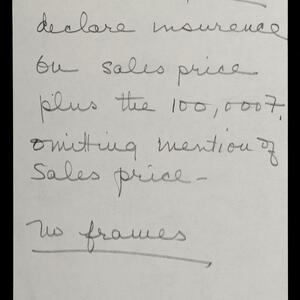 declare insurence
on sales price
plus the 100,000?,
omitting mention of
Sales price -
No frames